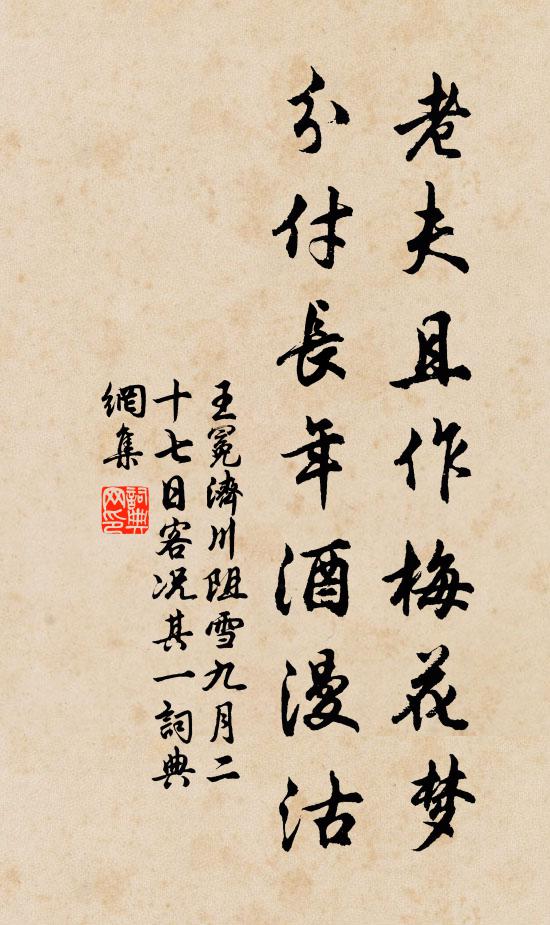 老夫且作梅花梦
分付長年酒漫沽
王冕濟川阻雪九月二
十七日客况其一詞典
網集
詞典
网印